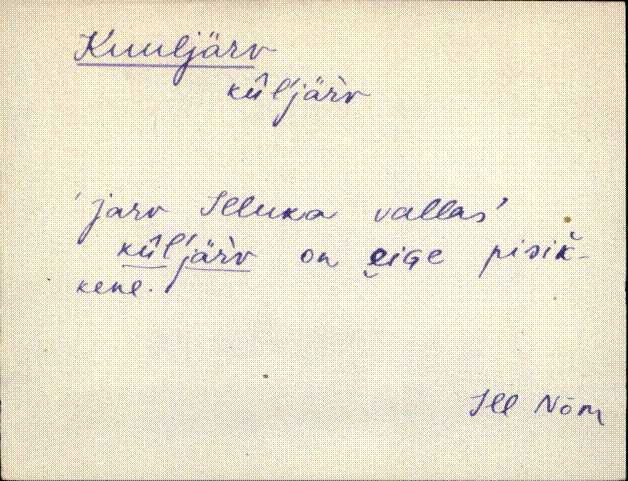 Kuuljärv
kûl'järv
'järv Illuka vallas'
kûl'järv on eige pisik̆-
kene.
Ill Nõm